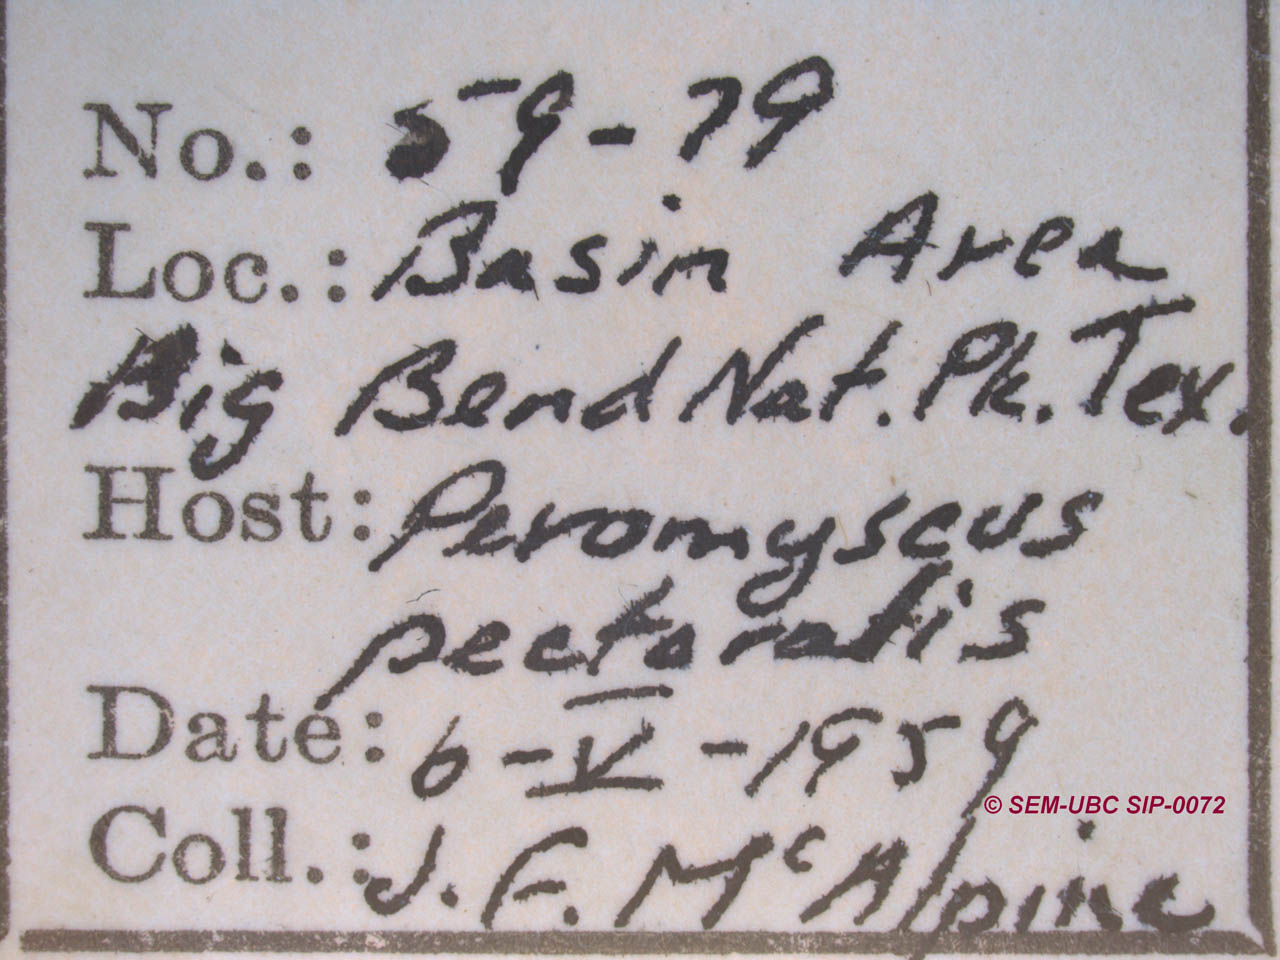 No.: 59-79
Loc.: Basin Area
Big Bend Nat. Pk. Tex.
Host: Peromyscus
pectoralis
Date: 6-V-1959
© SEM-UBC SIP-0072
Coll.: J. F. McAlpine